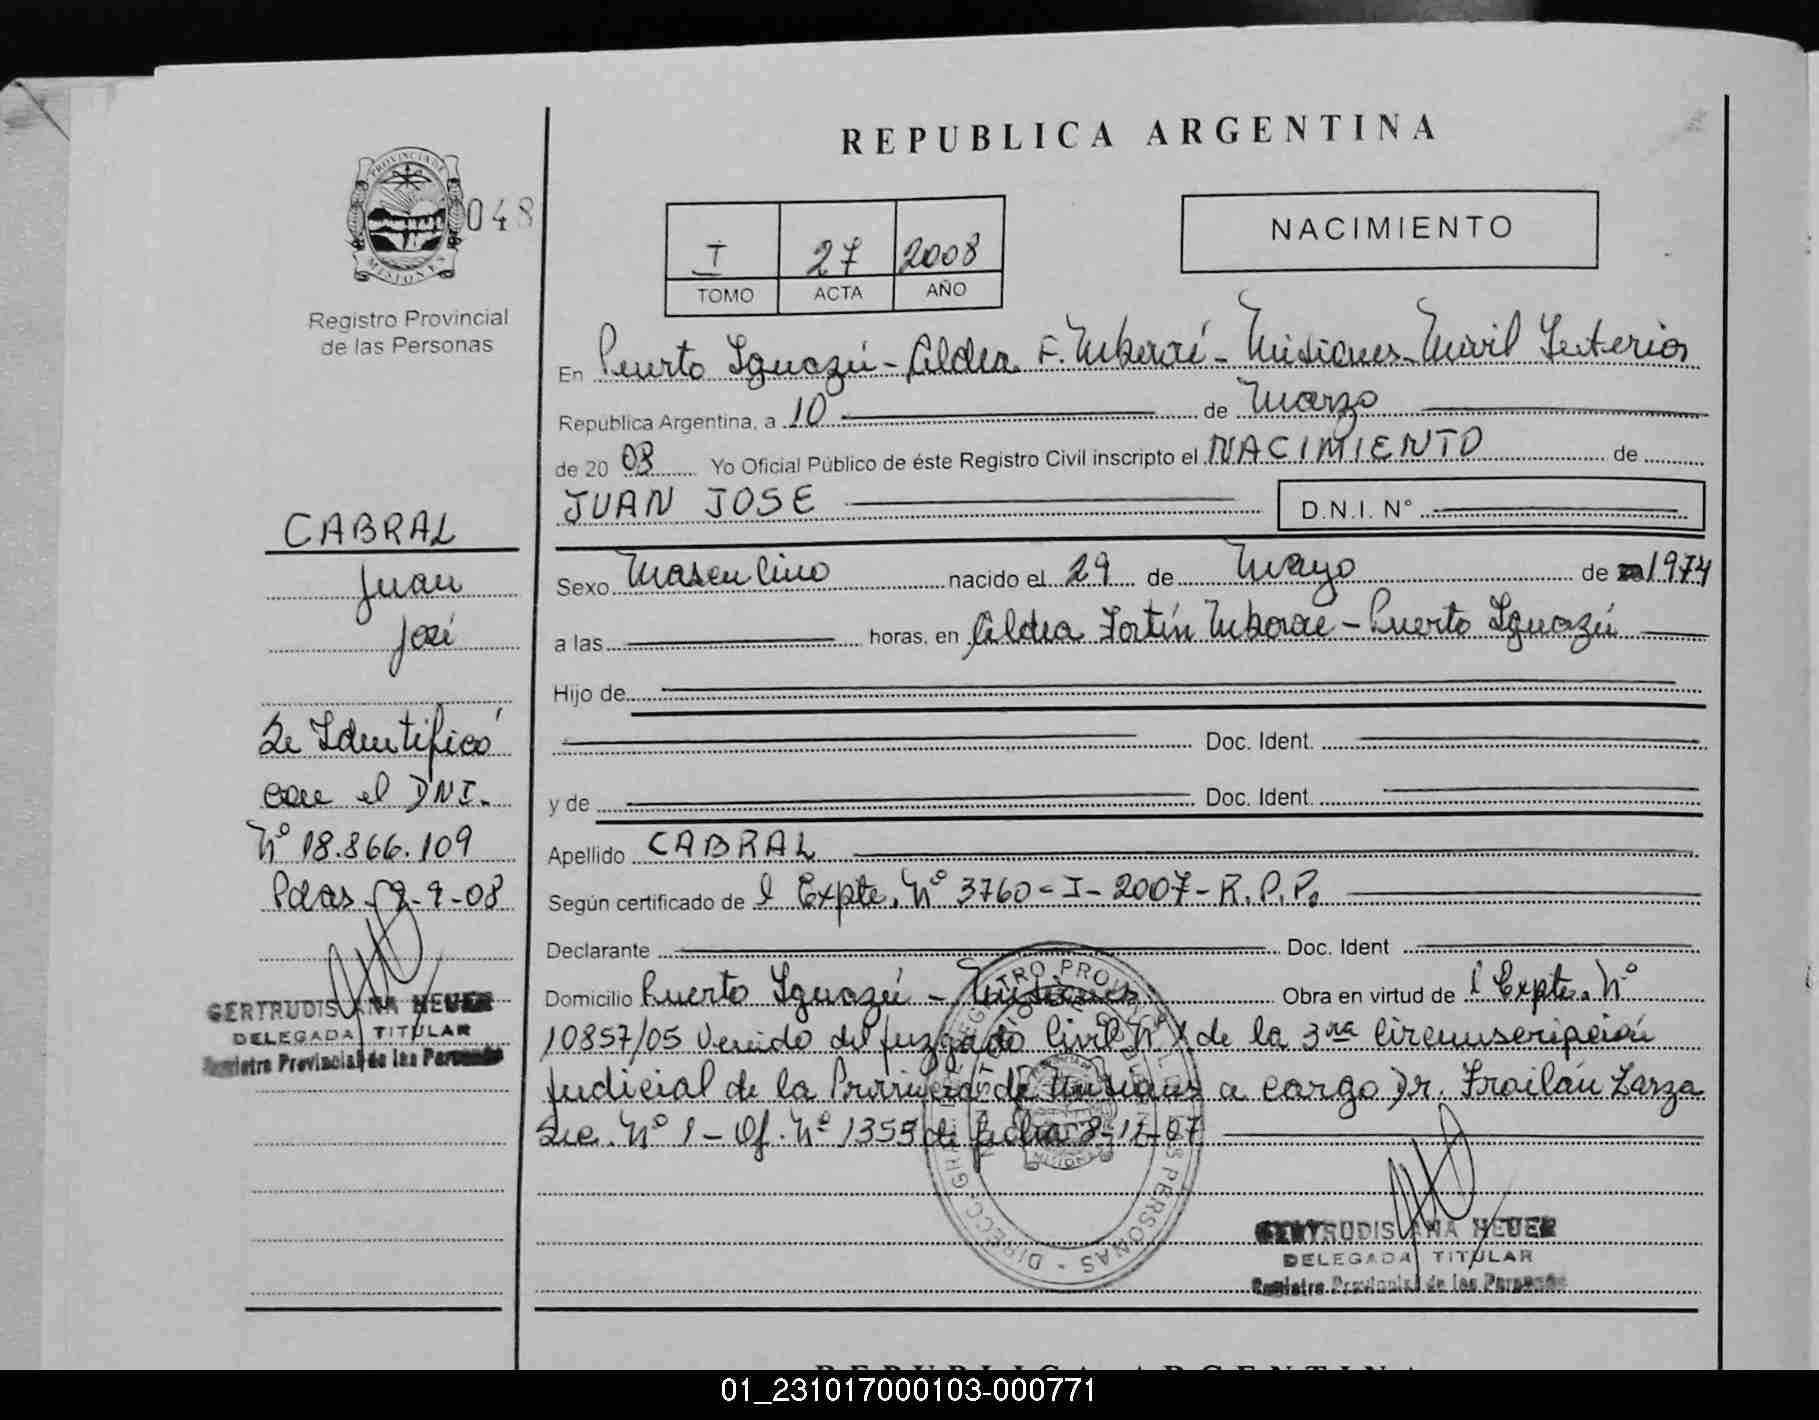 REPUBLICA ARGENTINA
PROVINCIA DE
MISIONES
048
Registro Provincial
de las Personas
I 27 2008
TOMO ACTA AÑO
NACIMIENTO
En Puerto Iguazú - Aldea F. Mbororé - Misiones Móvil Interior
Republica Argentina, a 10 de Marzo
de 20 08 Yo Oficial Público de éste Registro Civil inscripto el NACIMIENTO de
JUAN JOSE D.N.I. N°
Sexo Masculino nacido el 29 de Mayo de 1974
a las horas, en Aldea Fortín Mbororé - Puerto Iguazú
Hijo de
Doc. Ident.
y de Doc. Ident.
Apellido CABRAL
Según certificado de l Expte. N° 3760 - I - 2007 - R.P.P.
Declarante Doc. Ident
Domicilio Puerto Iguazú - Misiones Obra en virtud de l Expte. N°
10857/05 Venido del Juzgado Civil N° 1 de la 3ra Circunscripción
Judicial de la Provincia de Misiones a cargo Dr. Froilán Zarza
Sec. N° 1 - Of. N° 1355 de fecha 3-12-07
GERTRUDIS ANA HEUER
DELEGADA TITULAR
Registro Provincial de las Personas
CABRAL
Juan
José
Se Identificó
con el DNI.
N° 18.866.109
Pdas 9-08
GERTRUDIS ANA HEUER
DELEGADA TITULAR
Registro Provincial de las Personas
REPUBLICA ARGENTINA
01_231017000103-000771